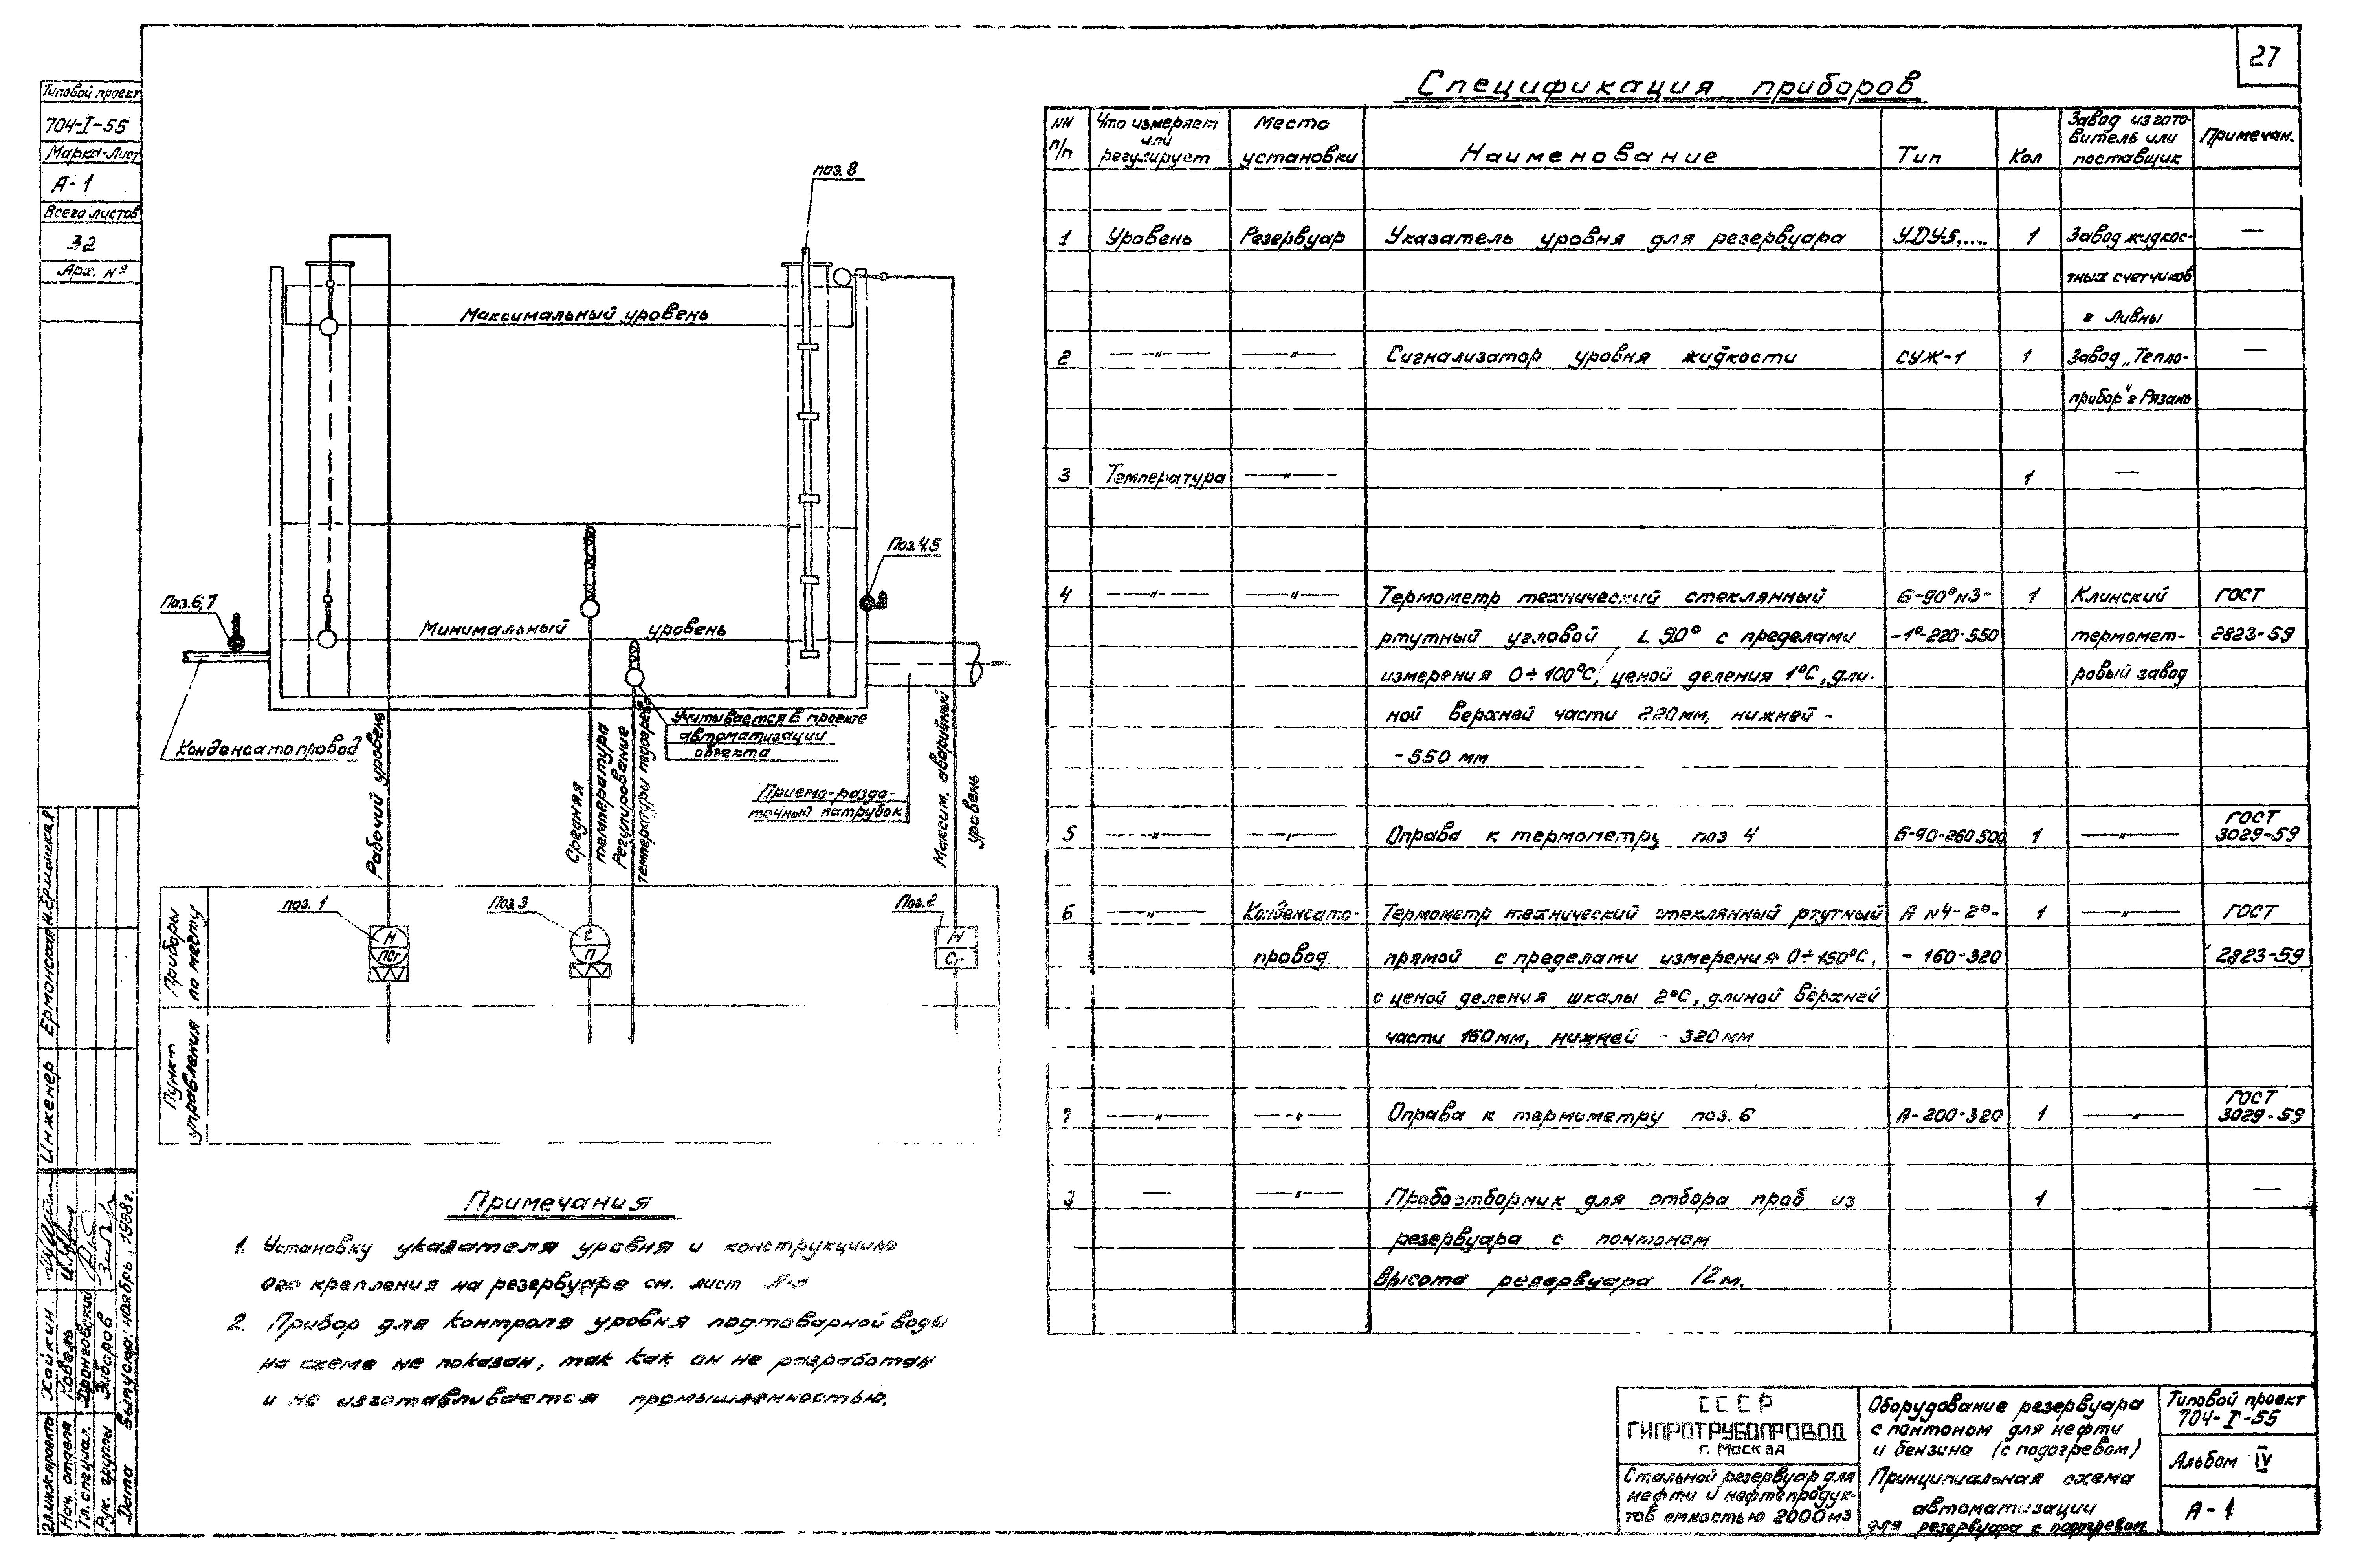 27
Типовой проект
704-I-55
Марка-Лист
А-1
Всего листов
32
Арх. №
поз. 8
Максимальный уровень
Поз. 4,5
Поз. 6,7
Минимальный уровень
Конденсатопровод
Учитывается в проекте
автоматизации
объекта
Приемо-разда-
точный патрубок
Рабочий уровень
Средняя
температура
Регулирование
температуры подогрева
Максим. аварийный
уровень
Приборы
по месту
Пункт
управления
поз. 1
Н
ПСГ
Поз. 3
t
П
Поз. 2
Н
Сг
Примечания
1. Установку указателя уровня и конструкцию
его крепления на резервуаре см. лист
2. Прибор для контроля уровня подтоварной воды
на схеме не показан, так как он не разработан
и не изготавливается промышленностью.
Спецификация приборов
NN п/п
Что измеряет или регулирует
Место установки
Наименование
Тип
Кол
Завод изгото-
витель или
поставщик
Примечан.
1 Уровень Резервуар Указатель уровня для резервуара УДУ5,.... 1 Завод жидкос- —
тных счетчиков
г Ливны
2 —"— —"— Сигнализатор уровня жидкости СУЖ-1 1 Завод „Тепло- —
прибор" г Рязань
3 Температура —"— 1 —
4 —"— —"— Термометр технический стеклянный Б-90°N3- 1 Клинский ГОСТ
ртутный угловой L 90° с пределами -1°-220-550 термомет- 2823-59
измерения 0÷100°С, ценой деления 1°С, дли- ровый завод
ной верхней части 220мм, нижней -
-550 мм
5 —"— —"— Оправа к термометру поз 4 Б-90-260 500 1 —"— ГОСТ 3029-59
6 —"— Конденсато- Термометр технический стеклянный ртутный А N4-2°- 1 —"— ГОСТ
провод прямой с пределами измерения 0÷150°С, - 160-320 2823-59
с ценой деления шкалы 2°С, длиной верхней
части 160мм, нижней - 320мм
7 —"— —"— Оправа к термометру поз. 6 А-200-320 1 —"— ГОСТ 3029-59
8 — —"— Пробоотборник для отбора проб из 1 —
резервуара с понтоном
Высота резервуара 12м.
Инженер Ермонская Н. Ермонская
Гл.инж.проекта Хайкин
Нач. отдела Ковель
Гл. специал. Дронговский
Рук. группы
Дата выпуска: ноябрь, 1968г.
СССР
ГИПРОТРУБОПРОВОД
г. Москва
Стальной резервуар для
нефти и нефтепродук-
тов емкостью 2000 м3
Оборудование резервуара
с понтоном для нефти
и бензина (с подогревом)
Принципиальная схема
автоматизации
для резервуара с подогревом
Типовой проект
704-I-55
Альбом IV
А-1